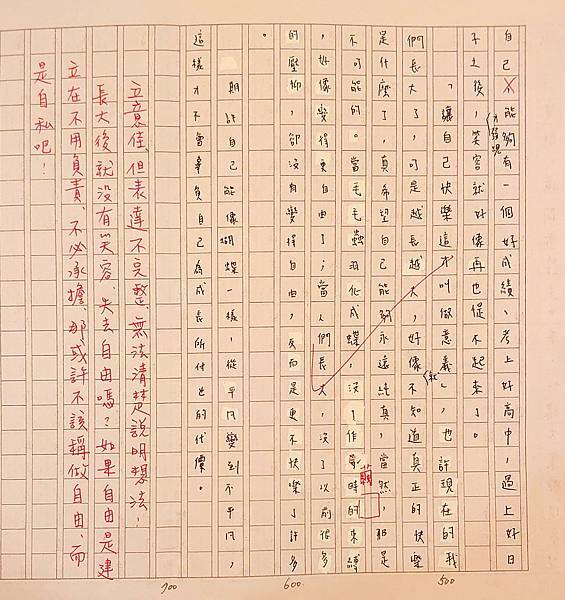 自己能夠有一個好成績、考上好高中，過上好日
子之後，才發現笑容就好像再也促不起來了。
「讓自己快樂這才叫做意義」，也許現在的我
們長大了，可是越長越大，好像就不知道真正的快樂
是什麼了，真希望自己能夠永遠純真，當然，那是
不可能的。當毛毛蟲羽化成蝶，沒了作繭時的束縛
，好像變得更自由了；當人們長大，沒了以前很多
的壓抑，卻沒自變得自由，反而是更不快樂了許多
。
期許自己能像蝴蝶一樣，從平凡變到不平凡，
這樣才不會辜負自己為成長所付出的代價。
立意佳，但表達不完整，無法清楚說明想法！
長大後就沒有笑容、失去自由嗎？如果自由是建
立在不用負責、不必承擔，那或許不該稱做自由，而
是自私吧！
500
600
700